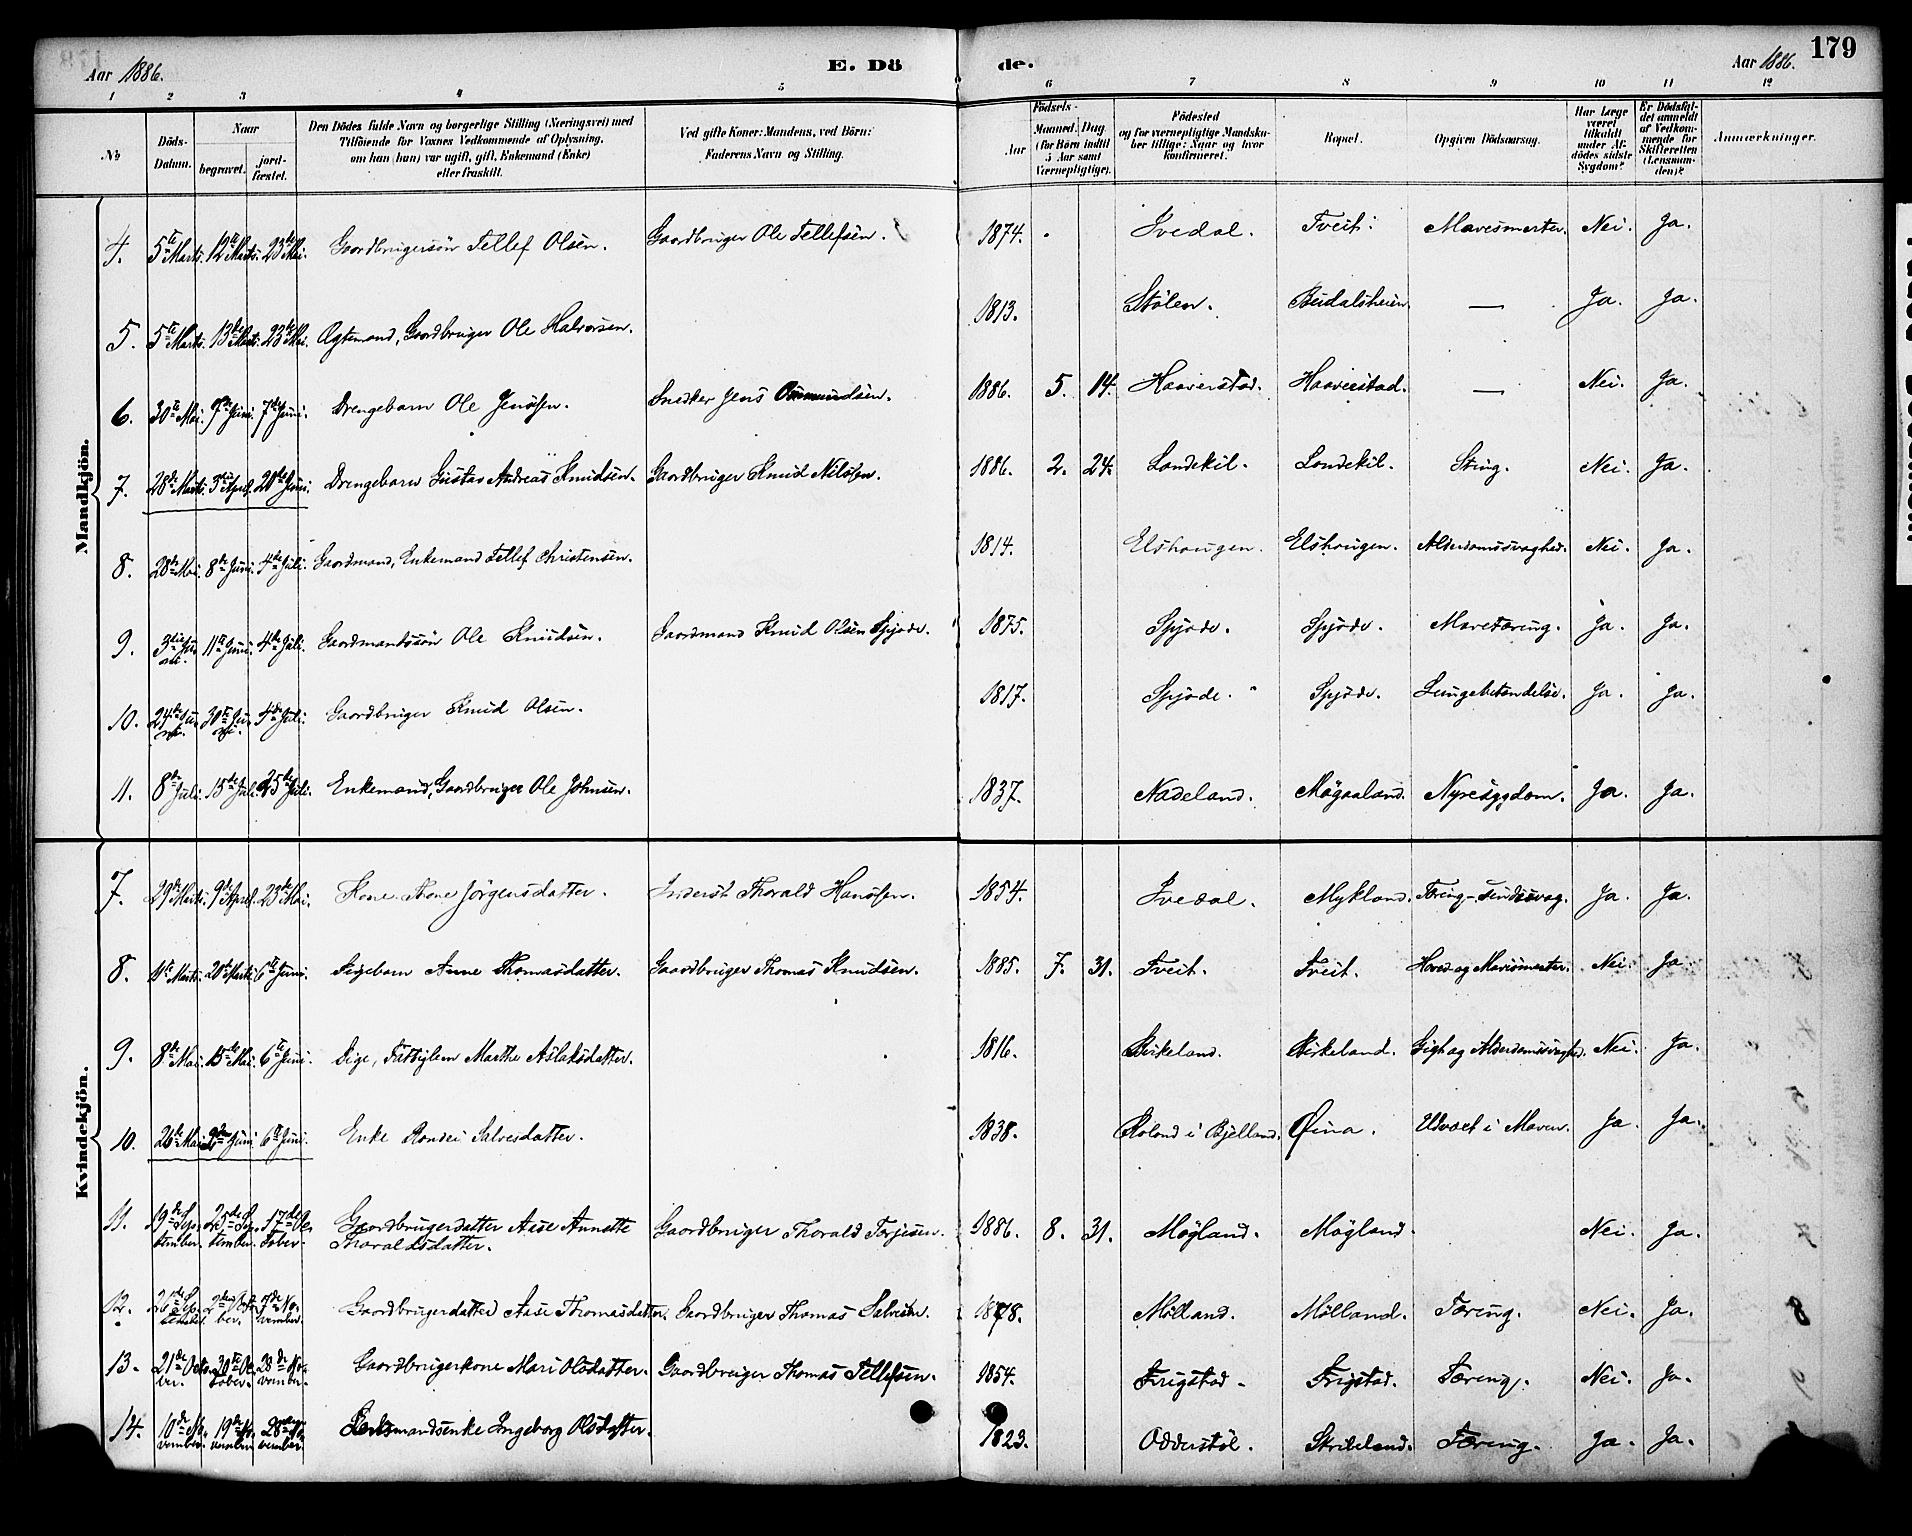 Aar 1886. E. Dö de. Aar 1886. 179
1 2 3 4 5 6 7 8 9 10 11 12
No
Döds-
Datum.
Naar
begravet.
jord-
fæstet.
Den Dödes fulde Navn og borgerlige Stilling (Næringsvei) med
Tilföiende for Voxnes Vedkommende af Oplysning,
om han (hun) var ugift, gift, Enkemand (Enke)
eller fraskilt.
Ved gifte Koner: Mandens, ved Börn:
Faderens Navn og Stilling.
Födsels-
Aar
Maaned. Dag
(for Börn indtil
5 Aar samt
Værnepligtige).
Födested
og for værnepligtige Mandsku-
ber tillige: Naar og hvor
konfirmeret.
Bopæl.
Opgiven Dödsaarsag.
Har Læge
været
tilkaldt
under Af-
dödes sidste
Sygdom?
Er Dödsfal-
det anmeldt
af Vedkom-
mende for
Skifteretten
(Lensman-
den)?
Anmærkninger.
Mandkjön.
4. 5te Marts. 12te Marts. 23de Mai. Gaardbrugersön Tellef Olsen. Gaardbruger Ole Tellefsen. 1874. Ivedal. Tveit. Mavesmerter. Nei. Ja.
5. 5te Marts. 13de Marts. 23de Mai. Ægtemand, Gaardbruger Ole Halvorsen. 1813. Stølen. Budalsheien. — Ja. Ja.
6. 30te Mai. 7de Juni. 7de Juni. Drengebarn Ole Jensøn. Snedker Jens Osmundsen. 1886. 5. 14. Haaverstad. Haaverstad. — Nei. Ja.
7. 28de Marts. 5te April. 20de Juni. Drengebarn Gustav Andreas Knudsen. Gaardbruger Knud Nilsøn. 1886. 2. 24. Landekil. Landekil. Sting. Nei. Ja.
8. 28de Mai. 8de Juni. 4de Juli. Gaardmand, Enkemand Tellef Christensen. 1814. Elshougen. Elshougen. Alderdomssvaghed. Nei. Ja.
9. 3die Juni. 11te Juni. 4de Juli. Gaardmandssön Ole Knudsen. Gaardmand Knud Olsen Spjøde. 1875. Spjøde. Spjøde. Mavetæring. Ja. Ja.
10. 24de Juni. 30te Juni. 4de Juli. Gaardbruger Knud Olsen. 1817. Spjøde. Spjøde. Lungebetændelse. Ja. Ja.
11. 8de Juli. 15de Juli. 25de Juli. Enkemand, Gaardbruger Ole Johnsen. 1837. Nadeland. Møgaaland. Nyresygdom. Ja. Ja.
Kvindekjön.
7. 29de Marts. 9de April. 23de Mai. Kone Thone Jörgensdatter. Inderst Thorald Hansøn. 1854. Ivedal. Mykland. Tæring-, sindssvag. Ja. Ja.
8. 11te Marts. 20de Marts. 6te Juni. Pigebarn Anne Thomasdatter. Gaardbruger Thomas Knudsen. 1885. 7. 31. Tveit. Tveit. Hoved og Mavesmerter. Nei. Ja.
9. 8de Mai. 15de Mai. 6te Juni. Pige, Fattiglem Marthe Aslaksdatter. 1816. Birkeland. Birkeland. Gigt og Alderdomssvaghed. Nei. Ja.
10. 26de Mai. 2den Juni. 6te Juni. Enke Randei Salvesdatter. 1838. Røland i Bjelland. Øina. Udvæxt i Maven. Ja. Ja.
11. 19de September. 25de September. 17de October. Gaardbrugerdatter Aase Annette
Thoraldsdatter. Gaardbruger Thorald Torjesen. 1886. 8. 31. Møgland. Møgland. Nei. Ja.
12. 26de September. 2den October. November. Gaardbrugerdatter Aase Thomasdatter. Gaardbruger Thomas Salvesen. 1878. Mølland. Mølland. Tæring. Nei. Ja.
13. 21de October. 30te October. 28de November. Gaardbrugerkone Mari Olsdatter. Gaardbruger Thomas Tellefsen. 1854. Frigstad. Frigstad. Tæring. Nei. Ja.
14. 10de November. 19de November. 28de November. Lensmandsenke Ingeborg Olsdatter. 1823. Odderstøl. Skrileland. Tæring. Ja. Ja.